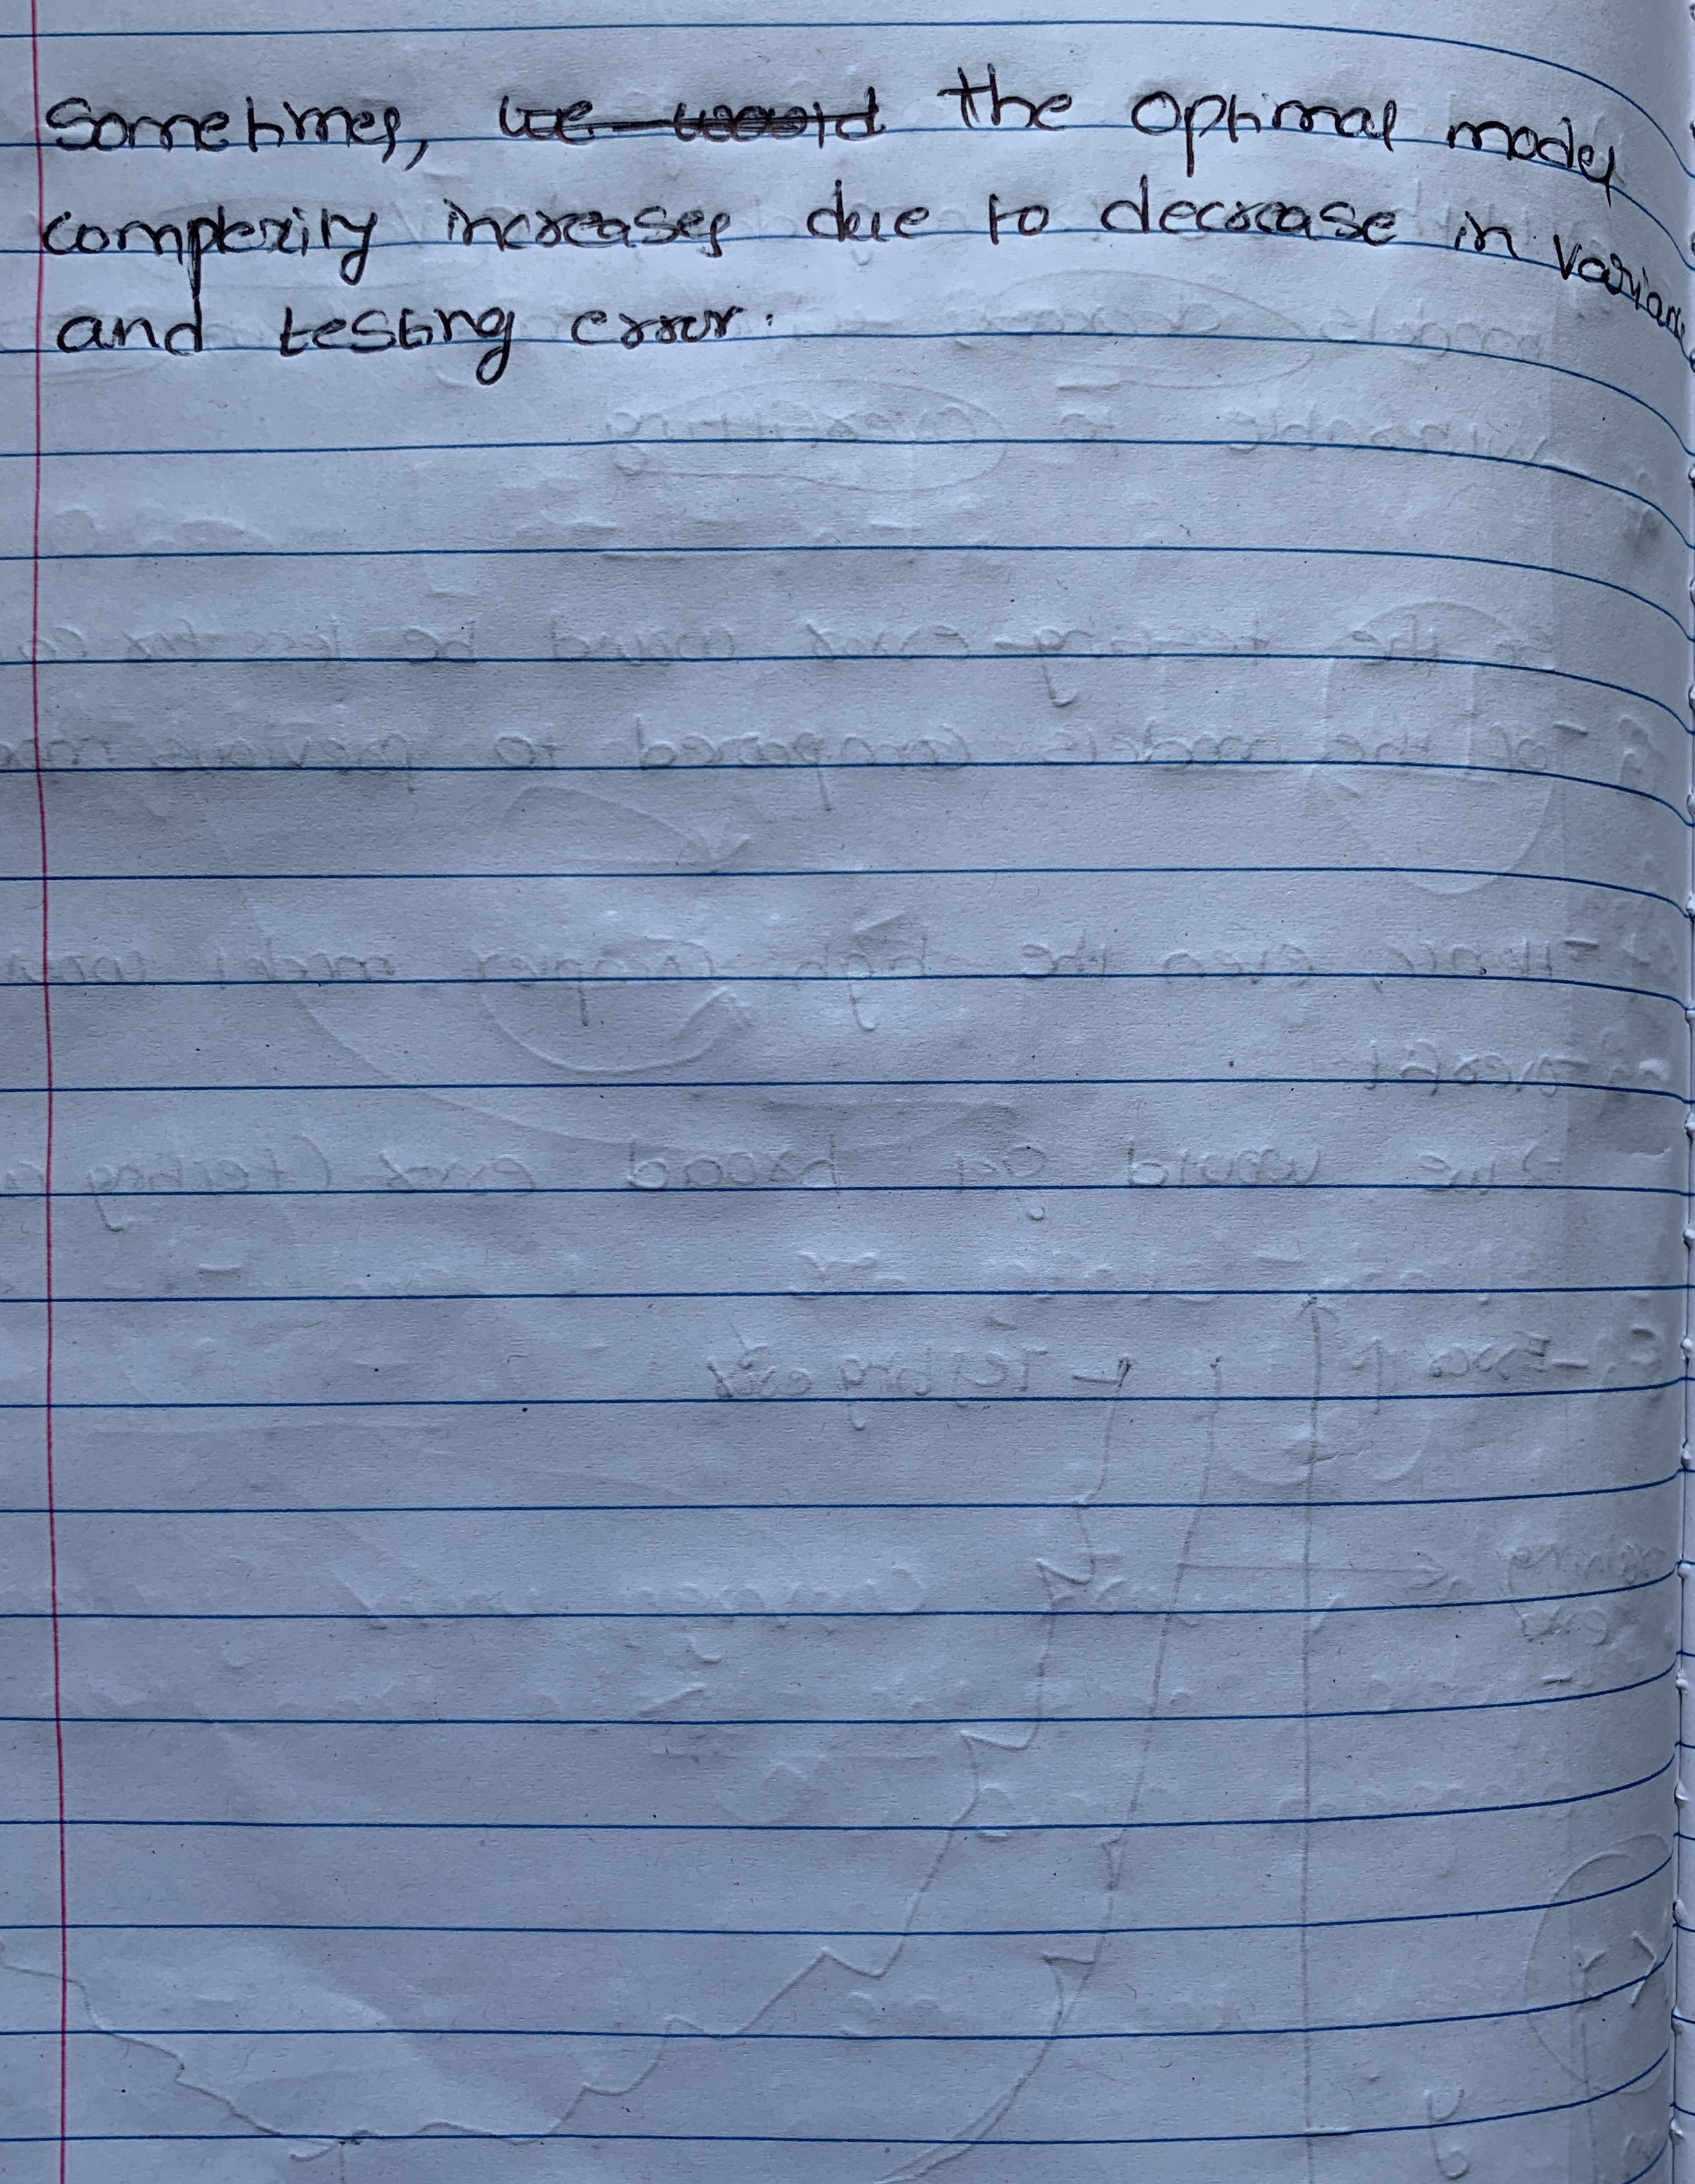 Sometimes, the optimal model
complexity increases due to decrease in varian
and testing error.